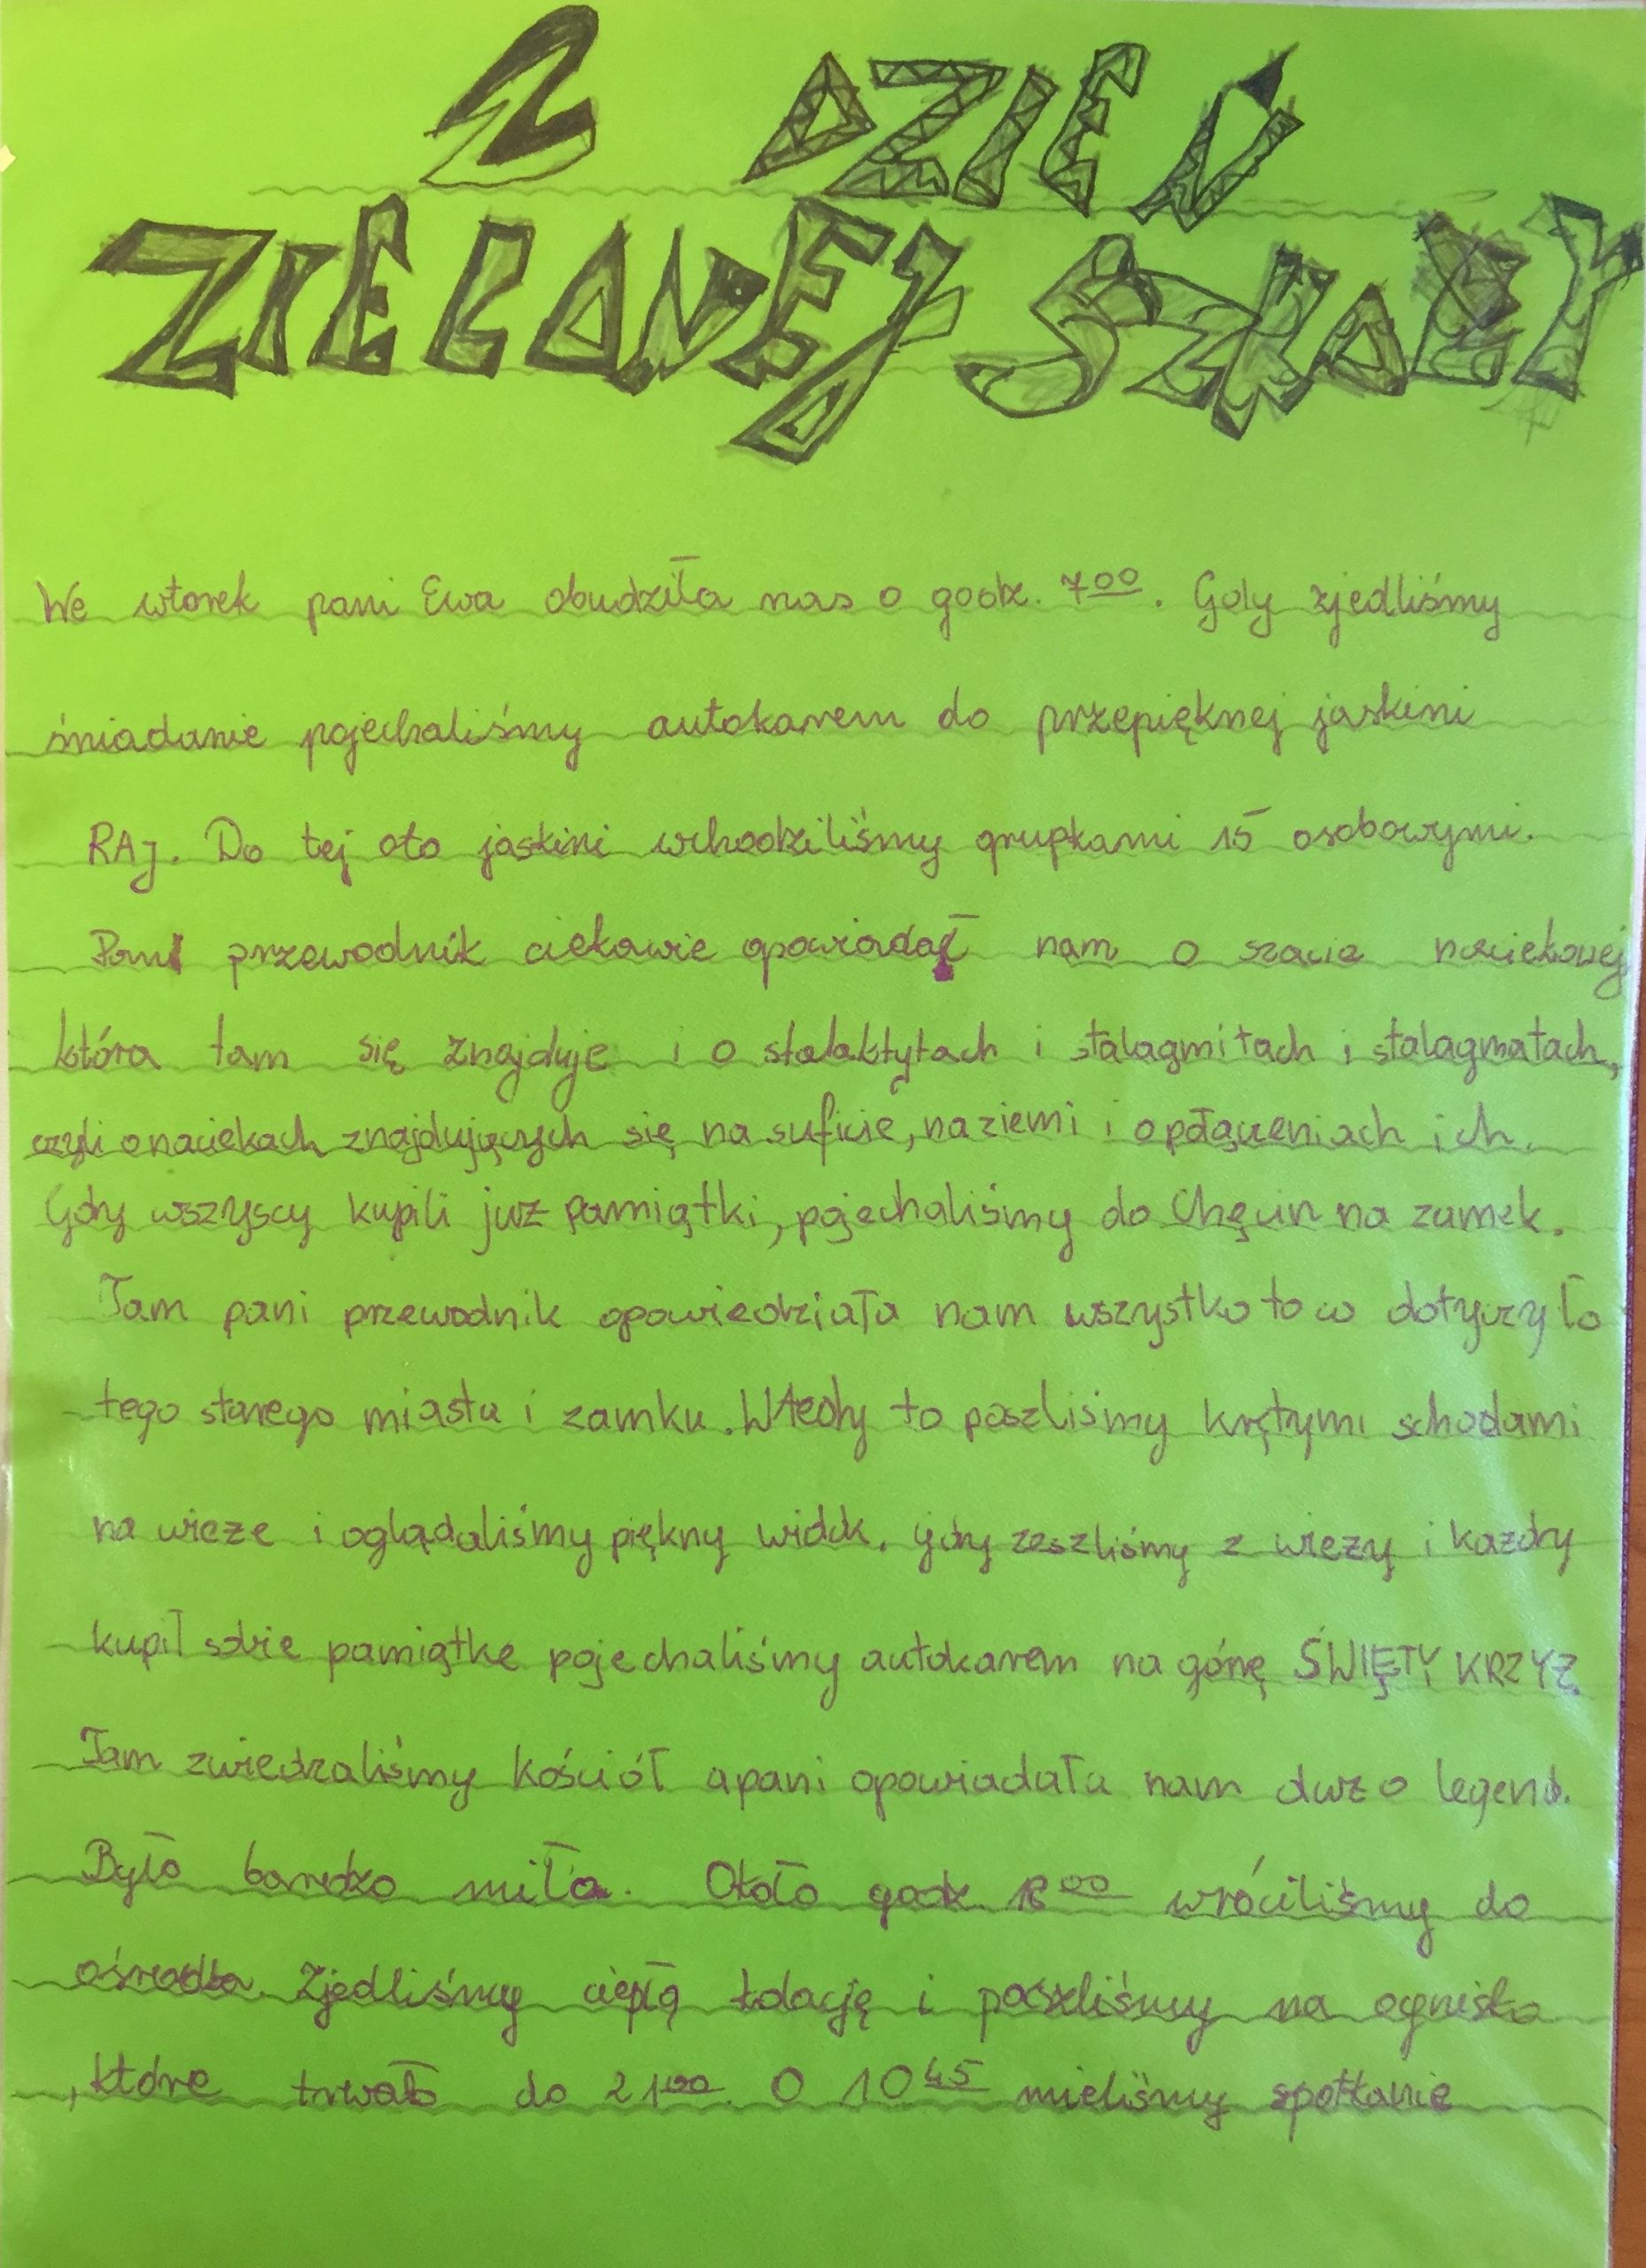 2 DZIEŃ
ZIELONEJ SZKOŁY
We wtorek pani Ewa obudziła nas o godz. 7⁰⁰. Gdy zjedliśmy
śniadanie pojechaliśmy autokarem do przepięknej jaskini
RAJ. Do tej oto jaskini wchodziliśmy grupkami 15 osobowymi.
Pan przewodnik ciekawie opowiadał nam o szacie naciekowej
która tam się znajduje i o stalaktytach i stalagmitach i stalagmatach,
czyli o naciekach znajdujących się na suficie, na ziemi i o połączeniach ich.
Gdy wszyscy kupili juz pamiątki, pojechaliśmy do Chęcin na zamek.
Tam pani przewodnik opowiedziała nam wszystko to co dotyczyło
tego starego miasta i zamku. Wtedy to poszliśmy krętymi schodami
na wieze i oglądaliśmy piękny widok. Gdy zeszliśmy z wiezy i kazdy
kupił sobie pamiątke pojechaliśmy autokarem na górę ŚWIĘTY KRZYZ.
Tam zwiedzaliśmy kościół a pani opowiadała nam duzo legend.
Było bardzo miło. Około godz. 18⁰⁰ wróciliśmy do
ośrodka. Zjedliśmy ciepłą kolację i poszliśmy na ognisko
, które trwało do 21⁰⁰. O 10⁴⁵ mieliśmy spotkanie